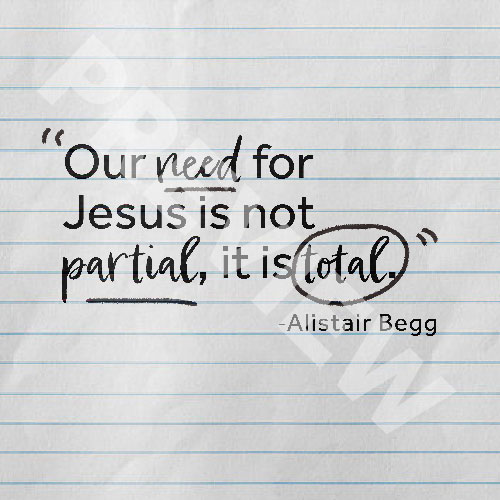 “Our need for
Jesus is not
partial, it is total.”
-Alistair Begg
PREVIEW